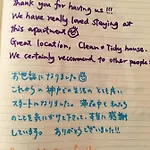 Thank you for having us!!!
We have really loved staying at
this apartment
Great location, Clean & Tidy house.
We certainly recommend to other people!
お世話になりました
これからの神戸での生活のとても良い
スタートになりました。滞在中も
のことを良くして下さって、本当に感謝
しています。ありがとうございました!!